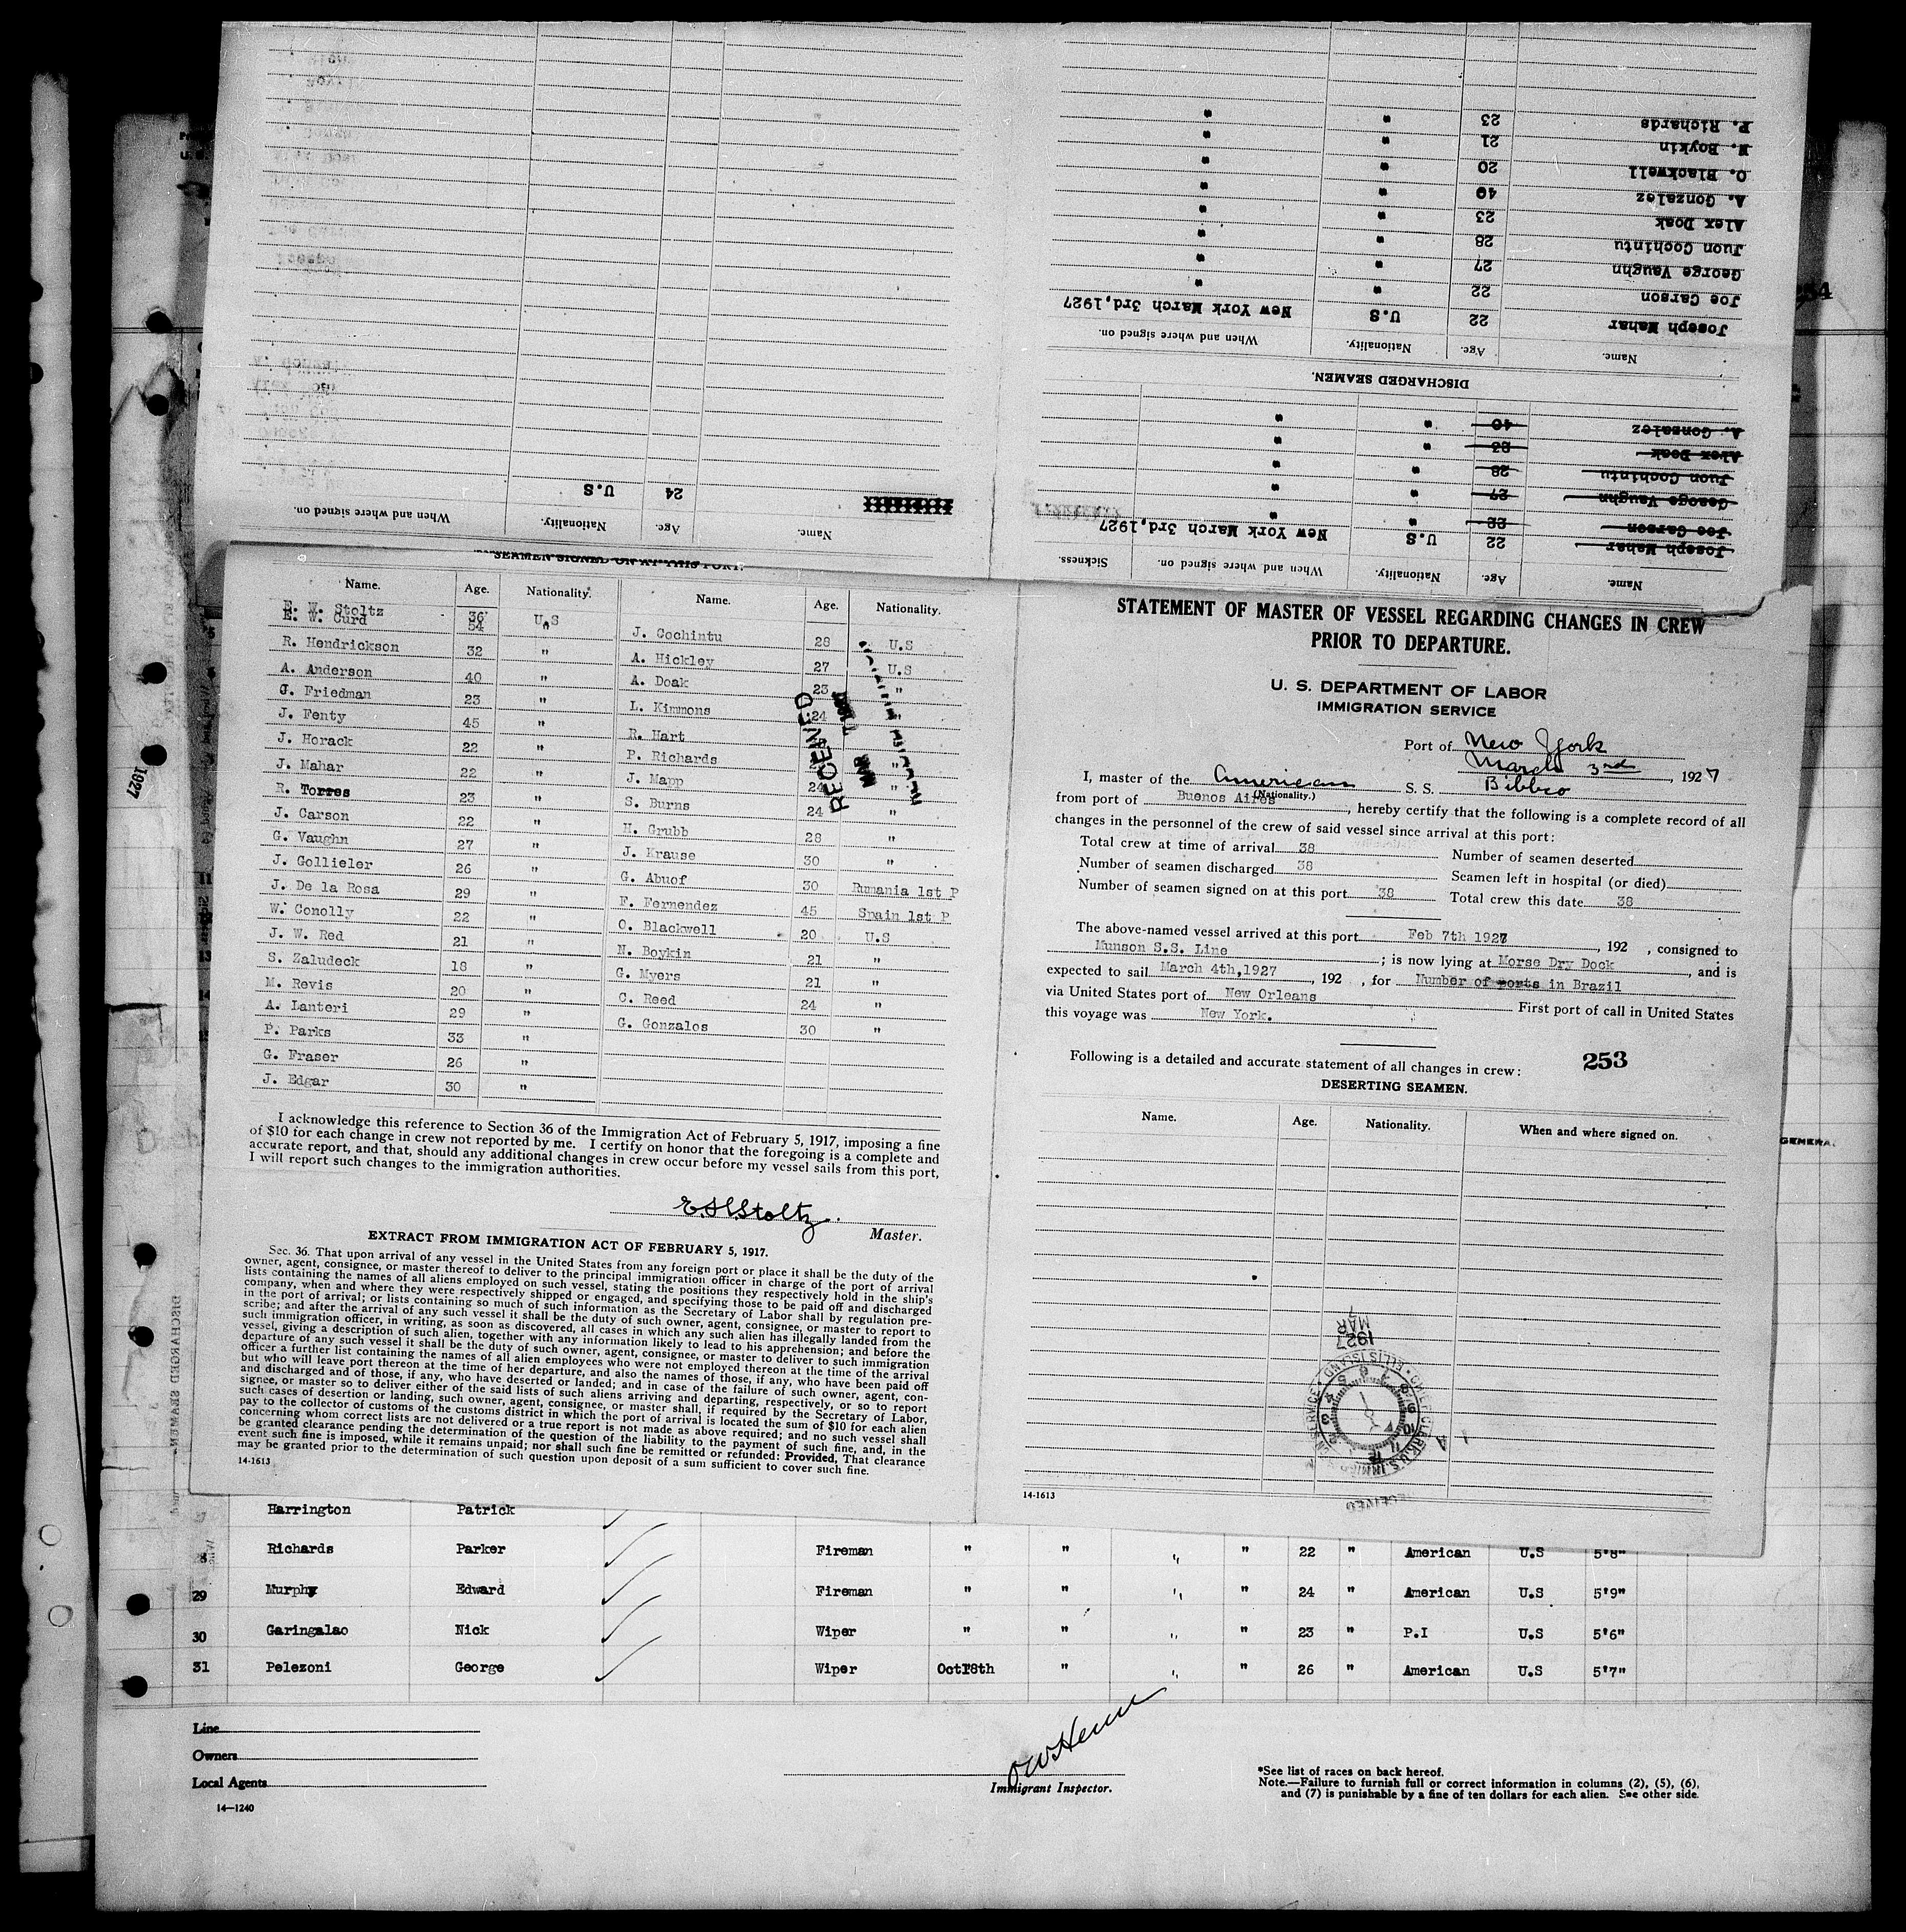 P. Richards 23 " "
N. Boykin 21 " "
O. Blackwell 20 " "
A. Gonzalez 40 " "
Alex Doak 23 " "
Juon Cochintu 28 " "
George Vaughn 27 " "
Joe Carson 22 " "
Joseph Mahar 22 U.S New York March 3rd,1927
Name. Age. Nationality. When and where signed on.
DISCHARGED SEAMEN.
A. Gonzalez 40 " "
Alex Doak 23 " "
Juon Cochintu 28 " "
George Vaughn 27 " "
Joe Carson 22 " "
Joseph Mahar 22 U.S New York March 3rd,1927
Name. Age. Nationality. When and where signed on. Sickness.
24 U.S
Name. Age. Nationality. When and where signed on.
SEAMEN SIGNED ON AT THIS PORT.
Name. Age. Nationality. Name. Age. Nationality.
E. W. Stoltz 36
E. W. Curd 54 U.S J. Cochintu 28 U.S
R. Hendrickson 32 " A. Hickley 27 U.S
A. Anderson 40 " A. Doak 23 "
J. Friedman 23 " L. Kimmons 24
J. Fenty 45 " R. Hart
J. Horack 22 " P. Richards "
J. Mahar 22 " J. Mapp 24 "
R. Torres 23 " S. Burns 24 "
J. Carson 22 " H. Grubb 28 "
G. Vaughn 27 " J. Krause 30 "
J. Gollieler 26 " G. Abuof 30 Rumania 1st P
J. De la Rosa 29 " F. Fernendez 45 Spain 1st P
W. Conolly 22 " O. Blackwell 20 U.S
J. W. Red 21 " N. Boykin 21 "
S. Zaludeck 18 " G. Myers 21 "
M. Revis 20 " C. Reed 24 "
A. Lanteri 29 " G. Gonzalos 30 "
P. Parks 33 "
G. Fraser 26 "
J. Edgar 30 "
RECEIVED
MAR
I acknowledge this reference to Section 36 of the Immigration Act of February 5, 1917, imposing a fine
of $10 for each change in crew not reported by me. I certify on honor that the foregoing is a complete and
accurate report, and that, should any additional changes in crew occur before my vessel sails from this port,
I will report such changes to the immigration authorities.
E.W.Stoltz
Master.
EXTRACT FROM IMMIGRATION ACT OF FEBRUARY 5, 1917.
Sec. 36. That upon arrival of any vessel in the United States from any foreign port or place it shall be the duty of the
owner, agent, consignee, or master thereof to deliver to the principal immigration officer in charge of the port of arrival
lists containing the names of all aliens employed on such vessel, stating the positions they respectively hold in the ship's
company, when and where they were respectively shipped or engaged, and specifying those to be paid off and discharged
in the port of arrival; or lists containing so much of such information as the Secretary of Labor shall by regulation pre-
scribe; and after the arrival of any such vessel it shall be the duty of such owner, agent, consignee, or master to report to
such immigration officer, in writing, as soon as discovered, all cases in which any such alien has illegally landed from the
vessel, giving a description of such alien, together with any information likely to lead to his apprehension; and before the
departure of any such vessel it shall be the duty of such owner, agent, consignee, or master to deliver to such immigration
officer a further list containing the names of all alien employees who were not employed thereon at the time of the arrival
but who will leave port thereon at the time of her departure, and also the names of those, if any, who have been paid off
and discharged and of those, if any, who have deserted or landed; and in case of the failure of such owner, agent, con-
signee, or master so to deliver either of the said lists of such aliens arriving and departing, respectively, or so to report
such cases of desertion or landing, such owner, agent, consignee, or master shall, if required by the Secretary of Labor,
pay to the collector of customs of the customs district in which the port of arrival is located the sum of $10 for each alien
concerning whom correct lists are not delivered or a true report is not made as above required; and no such vessel shall
be granted clearance pending the determination of the question of the liability to the payment of such fine, and, in the
event such fine is imposed, while it remains unpaid; nor shall such fine be remitted or refunded: Provided, That clearance
may be granted prior to the determination of such question upon deposit of a sum sufficient to cover such fine.
14-1613
STATEMENT OF MASTER OF VESSEL REGARDING CHANGES IN CREW
PRIOR TO DEPARTURE.
U. S. DEPARTMENT OF LABOR
IMMIGRATION SERVICE
Port of New York
March 3rd, 1927
I, master of the American S. S. Bibbco
(Nationality.)
from port of Buenos Aires, hereby certify that the following is a complete record of all
changes in the personnel of the crew of said vessel since arrival at this port:
Total crew at time of arrival 38 Number of seamen deserted
Number of seamen discharged 38 Seamen left in hospital (or died)
Number of seamen signed on at this port 38 Total crew this date 38
The above-named vessel arrived at this port Feb 7th 1927, 192 , consigned to
Munson S.S. Line ; is now lying at Morse Dry Dock, and is
expected to sail March 4th,1927, 192 , for Number of ports in Brazil
via United States port of New Orleans First port of call in United States
this voyage was New York.
253
Following is a detailed and accurate statement of all changes in crew:
DESERTING SEAMEN.
Name. Age. Nationality. When and where signed on.
1927
MAR
14-1613
Harrington Patrick
28 Richards Parker Fireman " " " " 22 " American U.S 5'8"
29 Murphy Edward Fireman " " " " 24 " American U.S 5'9"
30 Garingalao Nick Wiper " " " " 23 " P.I U.S 5'6"
31 Pelezoni George Wiper Oct18th " " " 26 " American U.S 5'7"
Line
Owners
Local Agents
14—1240
Immigrant Inspector.
*See list of races on back hereof.
Note.—Failure to furnish full or correct information in columns (2), (5), (6),
and (7) is punishable by a fine of ten dollars for each alien. See other side.
1927
DISCHARGED SEAMEN
GENERAL